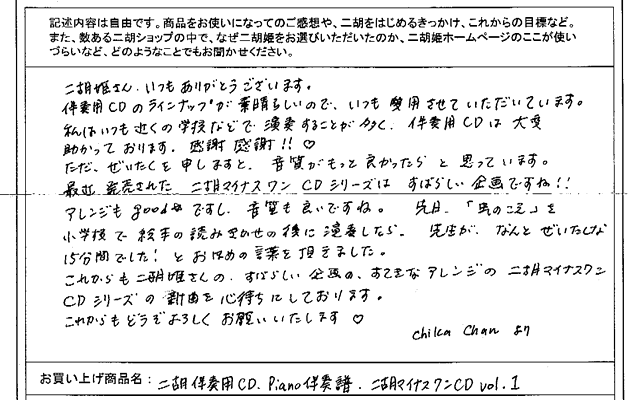 記述内容は自由です。商品をお使いになってのご感想や、二胡をはじめるきっかけ、これからの目標など。
また、数ある二胡ショップの中で、なぜ二胡姫をお選びいただいたのか、二胡姫ホームページのここが使い
づらいなど、どのようなことでもお聞かせください。
二胡姫さん、いつもありがとうございます。
伴奏用CDのラインナップが素晴らしいので、いつも愛用させていただいています。
私はいつも近くの学校などで演奏することが多く、伴奏用CDは大変
助かっております。感謝感謝!! ♡
ただ、ぜいたくを申しますと、音質がもっと良かったらと思っています。
最近発売された 二胡マイナスワンCDシリーズは すばらしい企画ですね!!
アレンジもgoodですし、音質も良いですね。 先日、「虫のこえ」を
小学校で絵本の読みきかせの後に演奏したら、先生が、なんとぜいたくな
15分間でした! とお褒めの言葉を頂きました。
これからも二胡姫さんの、すばらしい企画の、すてきなアレンジの二胡マイナスワン
CDシリーズの新曲を心待ちにしております。
これからもどうぞよろしくお願いいたします ♡
Chika Chan より
お買い上げ商品名:二胡伴奏用CD. Piano伴奏譜. 二胡マイナスワンCD vol.1